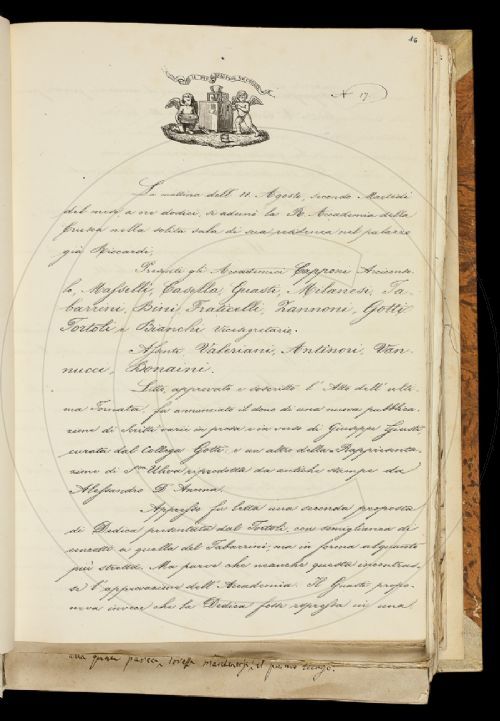 16
N 17.
La mattina dell' 11 Agosto, secondo Martedì
del mese a ore dodici, si adunò la R. Accademia della
Crusca nella solita sala di sua residenza nel palazzo
già Riccardi.
Presenti gli Accademici Capponi Arciconso-
lo, Masselli, Casella, Guasti, Milanesi, Ta-
barrini, Bini, Fraticelli, Zannoni, Gotti
Tortoli, e Bianchi Vicesegretario.
Assenti Valeriani, Antinori, Van-
nucci, Bonaini.
Letto, approvato e sottoscritto l'Atto dell'ulti-
ma Tornata, fu annunciato il dono di una nuova pubblica-
zione di Scritti varii in prosa e in verso di Giuseppe Giusti
curata dal Collega Gotti, e un altro della Rappresenta-
zione di S.ta Uliva riprodotta da antiche stampe da
Alessandro D'Ancona.
Appresso fu letta una seconda proposta
di Dedica presentata dal Tortoli, con somiglianza di
concetto a quella del Tabarrini, ma in forma alquanto
più stretta. Ma parve che neanche questa incontras-
se l'approvazione dell'Accademia. Il Guasti propo-
neva invece che la Dedica fosse espressa in una
una